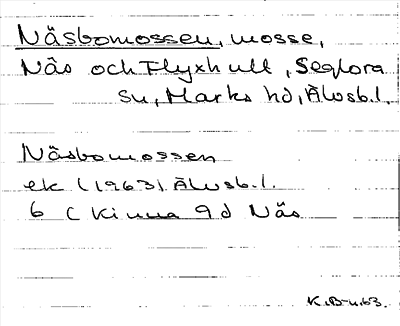 Näsbomossen, mosse,
Näs och Flyxhult, Seglora
sn, Marks hd, Älvsb.l.
Näsbomossen
ek (1963) Älvsb.l.
6 C Kinna 9d Näs
K.B-n.63.